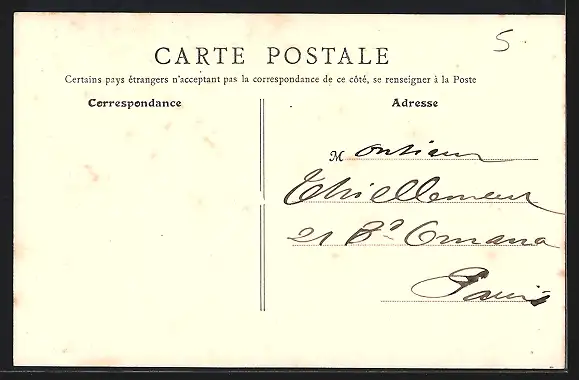 5
CARTE POSTALE
Certains pays étrangers n'acceptant pas la correspondance de ce côté, se renseigner à la Poste
Correspondance
Adresse
Monsieur
Thiellement
21 Bd Ornano
Paris